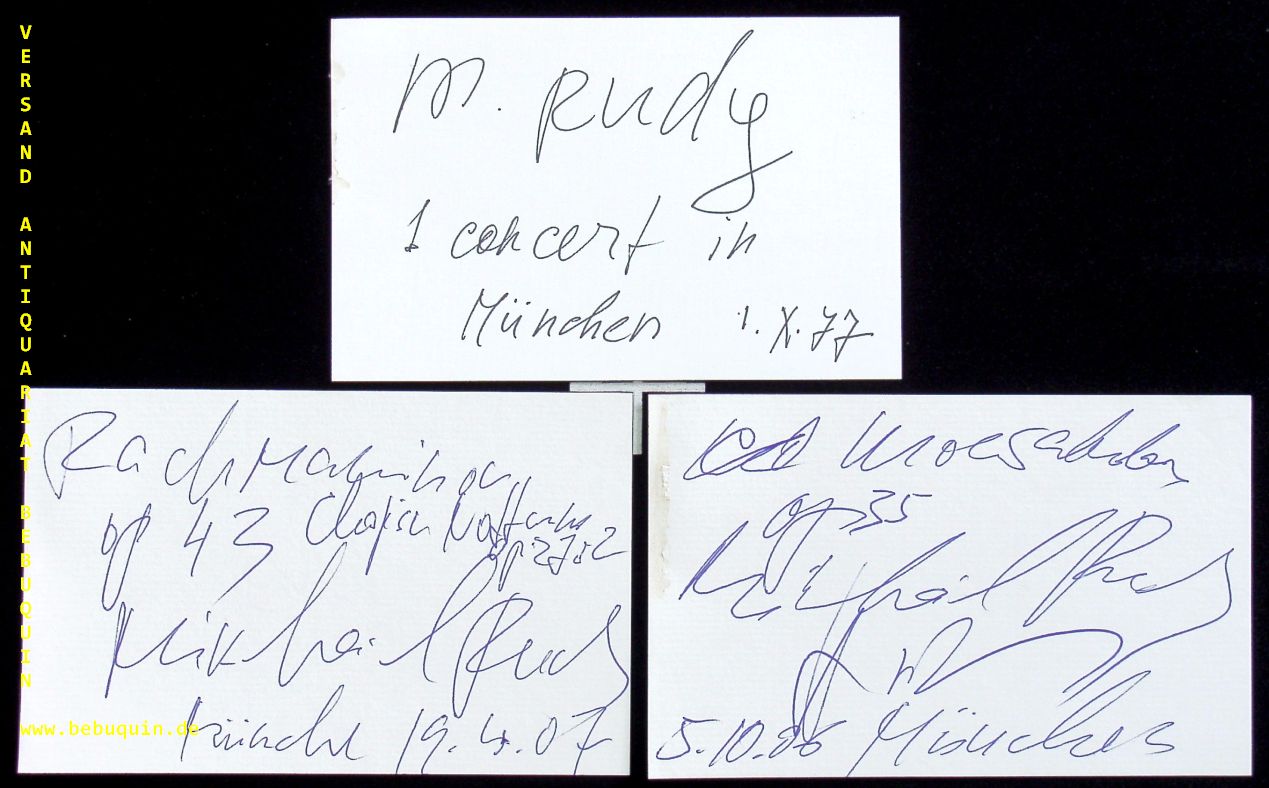 VERSAND ANTIQUARIAT BEBUQUIN
www.bebuquin.de
M. Rudy
1 concert in
München 1.X.77
Rachmaninov
op 43 Chopin
op. 27 2
Mikhail Rudy
München 19.4.07
op 35
Mikhail Rudy
5.10.06 München